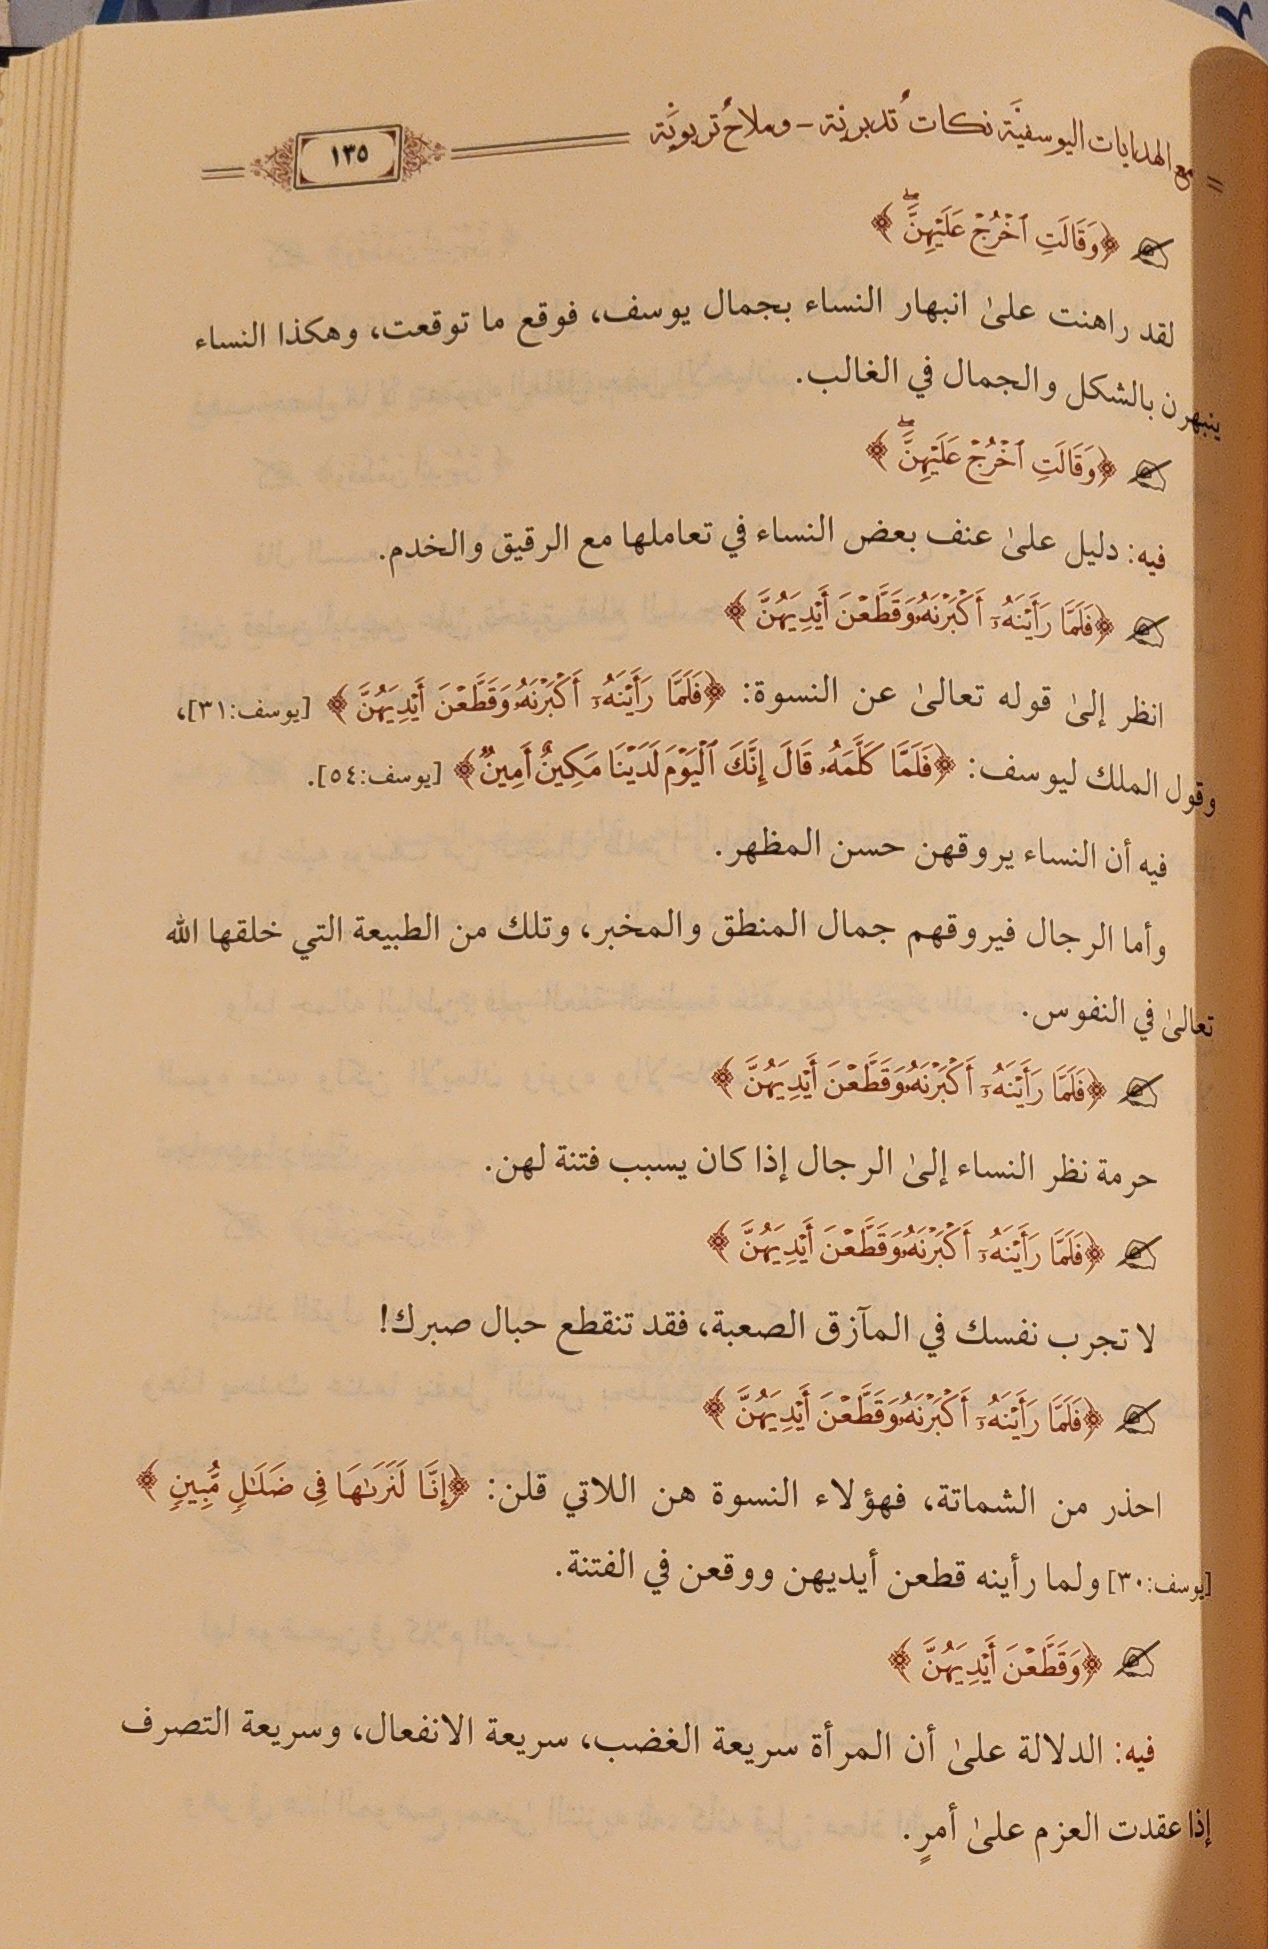 مع الهدايات اليوسفيَّة نكاتٌ تدبرية - وملامحُ تربويَّة
١٣٥
﴿وَقَالَتِ ٱخْرُجْ عَلَيْهِنَّۖ﴾
لقد راهنت علىٰ انبهار النساء بجمال يوسف، فوقع ما توقعت، وهكذا النساء
ينبهرن بالشكل والجمال في الغالب.
﴿وَقَالَتِ ٱخْرُجْ عَلَيْهِنَّۖ﴾
فيه: دليل علىٰ عنف بعض النساء في تعاملها مع الرقيق والخدم.
﴿فَلَمَّا رَأَيْنَهُۥٓ أَكْبَرْنَهُۥ وَقَطَّعْنَ أَيْدِيَهُنَّ﴾
انظر إلىٰ قوله تعالىٰ عن النسوة: ﴿فَلَمَّا رَأَيْنَهُۥٓ أَكْبَرْنَهُۥ وَقَطَّعْنَ أَيْدِيَهُنَّ﴾ [يوسف:٣١]،
وقول الملك ليوسف: ﴿فَلَمَّا كَلَّمَهُۥ قَالَ إِنَّكَ ٱلْيَوْمَ لَدَيْنَا مَكِينٌ أَمِينٌ﴾ [يوسف:٥٤].
فيه أن النساء يروقهن حسن المظهر.
وأما الرجال فيروقهم جمال المنطق والمخبر، وتلك من الطبيعة التي خلقها الله
تعالىٰ في النفوس.
﴿فَلَمَّا رَأَيْنَهُۥٓ أَكْبَرْنَهُۥ وَقَطَّعْنَ أَيْدِيَهُنَّ﴾
حرمة نظر النساء إلىٰ الرجال إذا كان يسبب فتنة لهن.
﴿فَلَمَّا رَأَيْنَهُۥٓ أَكْبَرْنَهُۥ وَقَطَّعْنَ أَيْدِيَهُنَّ﴾
لا تجرب نفسك في المآزق الصعبة، فقد تنقطع حبال صبرك!
﴿فَلَمَّا رَأَيْنَهُۥٓ أَكْبَرْنَهُۥ وَقَطَّعْنَ أَيْدِيَهُنَّ﴾
احذر من الشماتة، فهؤلاء النسوة هن اللاتي قلن: ﴿إِنَّا لَنَرَىٰهَا فِى ضَلَٰلٍ مُّبِينٍ﴾
[يوسف:٣٠] ولما رأينه قطعن أيديهن ووقعن في الفتنة.
﴿وَقَطَّعْنَ أَيْدِيَهُنَّ﴾
فيه: الدلالة علىٰ أن المرأة سريعة الغضب، سريعة الانفعال، وسريعة التصرف
إذا عقدت العزم علىٰ أمرٍ.